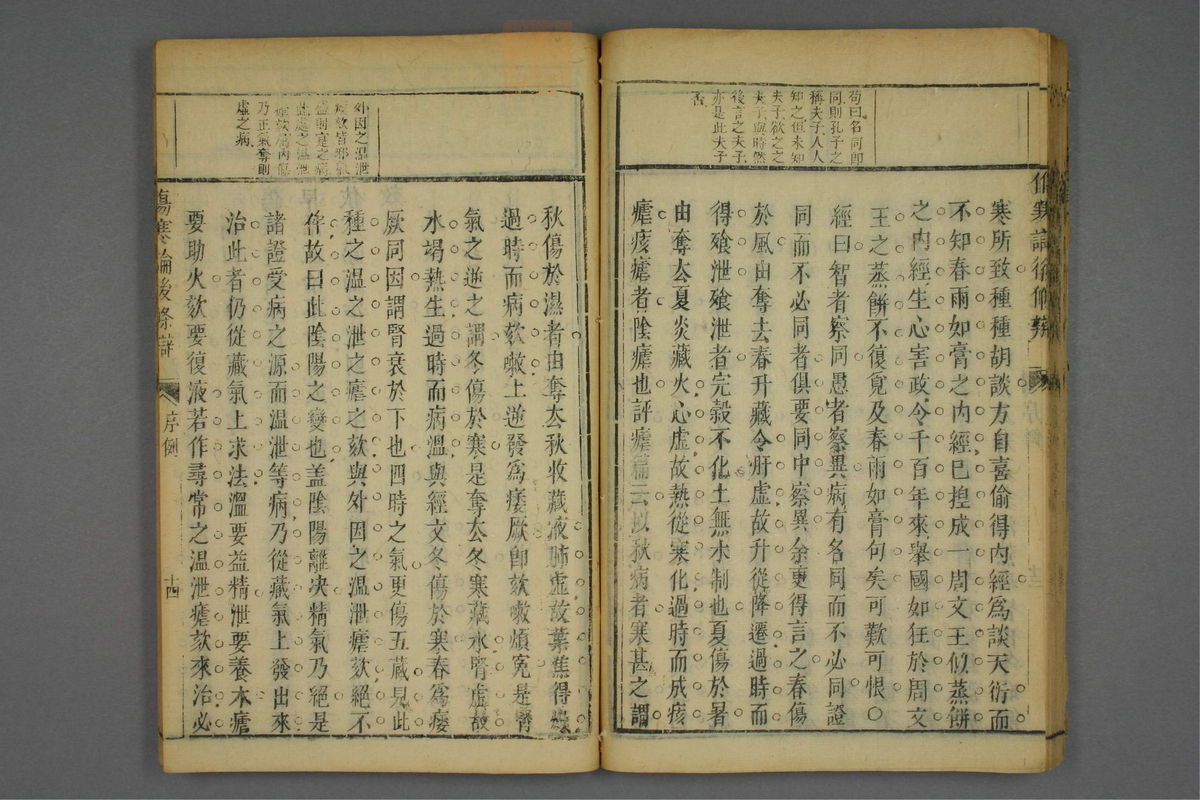 苟曰名同即
同則孔子之
稱夫子人人
知之但未知
夫子欲之之
夫子與時然
後言之夫子
亦是此夫子
否
寒所致種種胡談方自喜偷得內經爲談天衍而
不知春雨如膏之內經已揑成一周文王似蒸餅
之內經生心害政令千百年來舉國如狂於周文
王之蒸餅不復覓及春雨如膏句矣可歎可恨〇
經曰智者察同愚者察異病有名同而不必同證
同而不必同者俱要同中察異余更得言之春傷
於風由奪去春升藏令肝虛故升從降遷過時而
得飱泄飱泄者完穀不化土無木制也夏傷於暑
由奪去夏炎藏火心虛故熱從寒化過時而成痎
瘧痎瘧者陰瘧也評瘧篇云以秋病者寒甚之謂
外因之溫泄
瘧欬皆邪氣
盛則實之病
此處之溫泄
瘧欬屬內傷
乃正氣奪則
虛之病
秋傷於濕者由奪去秋收藏液肺虛故葉焦得燥
過時而病欬嗽上逆發爲痿厥卽欬嗽煩寃是腎
氣之逆之謂冬傷於寒是奪去冬寒藏水腎虛故
水竭熱生過時而病溫與經文冬傷於寒春爲痿
厥同因謂腎衰於下也四時之氣更傷五藏見此
種之溫之泄之瘧之欬與外因之溫泄瘧欬絕不
侔故曰此陰陽之變也盖陰陽離决精氣乃絕是
諸證受病之源而溫泄等病乃從藏氣上發出來
治此者仍從藏氣上求法溫要益精泄要養本瘧
要助火欬要復液若作尋常之溫泄瘧欬來治必
傷寒論後條辯
序例
十四